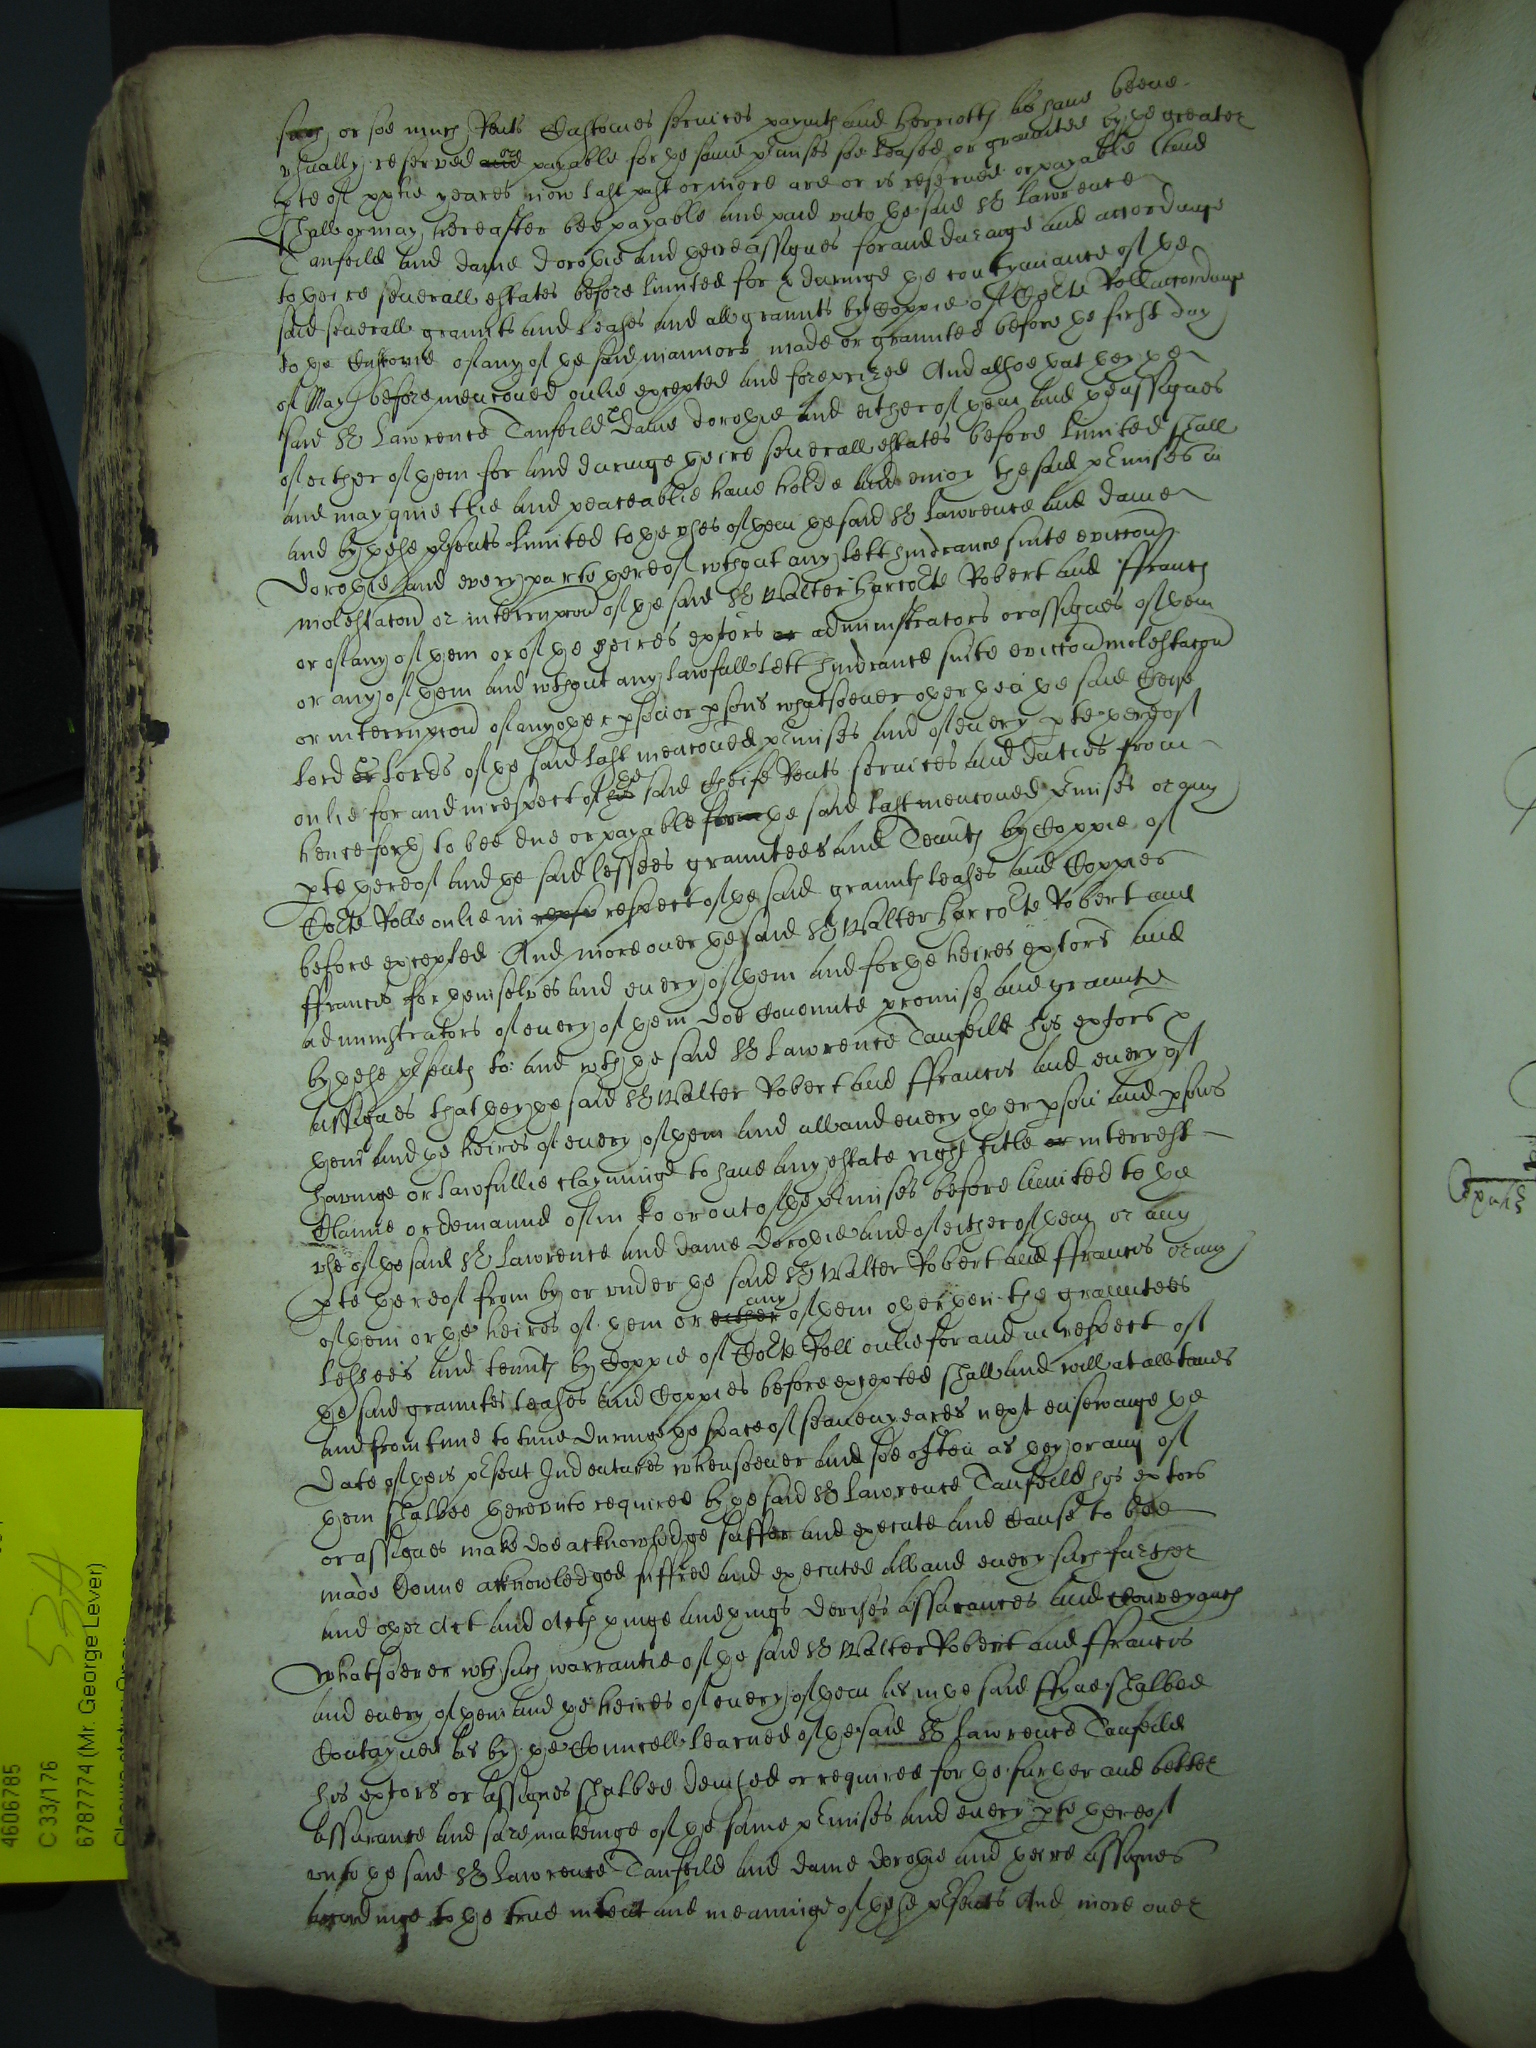 such or soe much Rents Customes services paymts and herriotts as have beene
usually reserved and or payable for ye same pmisses soe leased or graunted by ye greater
pte of xxtie yeares now last past or more are or is reserved or payable And
shall or may hereafter bee payable and paid unto ye said Sr Lawrence
Tanfeild and dame dorothie and yeire assignes for and duringe and accordinge
to yeire severall estates before limited for & duringe ye contynuance of ye
said severall graunts and leases and all graunts by Coppie of Corte Roll accordinge
to ye Custome of any of ye said mannors made or graunted before ye first day
of May before menconed onlie excepted and foreprized And alsoe yat yey ye
said Sr Lawrence Tanfeild & dame dorothie and either of yem and ye assignes
of either of yem for and duringe yeire severall estates before limited shall
and may quietlie and peaceablie have holde and enioy the said pmisses in
and by yese psents limited to ye uses of yem ye said Sr Lawrence and dame
dorothie and every parte yereof wthout any lett hindrance suite eviccon
molestacon or interrupcon of ye said Sr Walter Harcorte Robert and ffrancis
or of any of yem or of ye heires exctors or administrators or assignes of yem
or any of yem and wthout any lawfull lett hindrance suite eviccon molestacon
or interrupcon of any oyer pson or psons whatsoever oyer yen ye said Cheife
Lord or Lords of ye said last menconed pmisses and of every pte yereof
onlie for and in respect of his ye said Cheife Rents services and duties from
henceforth to bee due or payable from ye said last menconed pmisses or any
pte yereof and ye said lessees grauntees and Tennts by Coppie of
Corte Rolle onlie in respect of ye said graunts leases and Coppies
before excepted And moreover ye said Sr Walter Harcorte Robert and
ffrancis for yemselves and every of yem and for ye heires exctors and
administrators of every of yem doe Covennte promise and graunte
by yese psents to and wth ye said Sr Lawrence Tanfeild his exctors &
assignes that yey ye said Sr Walter Robert and ffrancis and every of
yem and ye heires of every of yem and all and every oyer pson and psons
havinge or lawfullie clayminge to have any estate right title or interrest
Claime or demaund of in to or out of ye pmisses before limited to ye
use of ye said Sr Lawrence and dame dorothie and of either of yem or any
pte yereof from by or under ye said Sr Walter Robert and ffrancis or any
of yem or ye heires of yem or either any of yem oyer yen the grauntees
lessees and tennts by Coppie of Corte Roll onlie for and in respect of
ye said grauntes leases and Coppies before excepted shall and will at all times
and from time to time duringe ye space of seaven yeares next ensewinge ye
date of yeis psent Indentures whensoever and soe often as yey or any of
yem shalbee yereunto required by ye said Sr Lawrence Tanfeild his exctors
or assignes make doe acknowledge suffer and execute and cause to bee
made donne acknowledged suffred and executed all and every such further
and oyer Act and Acts yinge and yings devises assurances and Conveyancs
whatsoever wth such warrantie of ye said Sr Walter Robert and ffrancis
and every of yem and ye heires of every of yem as in ye said ffyne shalbee
Contayned as by ye Councell learned of ye said Sr Lawrence Tanfeild
his exctors or assignes shalbee devised or required for ye furyer and better
assurance and suremakeinge of ye same pmisses and every pte yereof
unto ye said Sr Lawrence Tanfeild and dame dorothie and yeire assignes
accordinge to ye true intent and meaninge of yese psents And moreover
534
4606785
C 33/176
6787774 (Mr. George Lever)